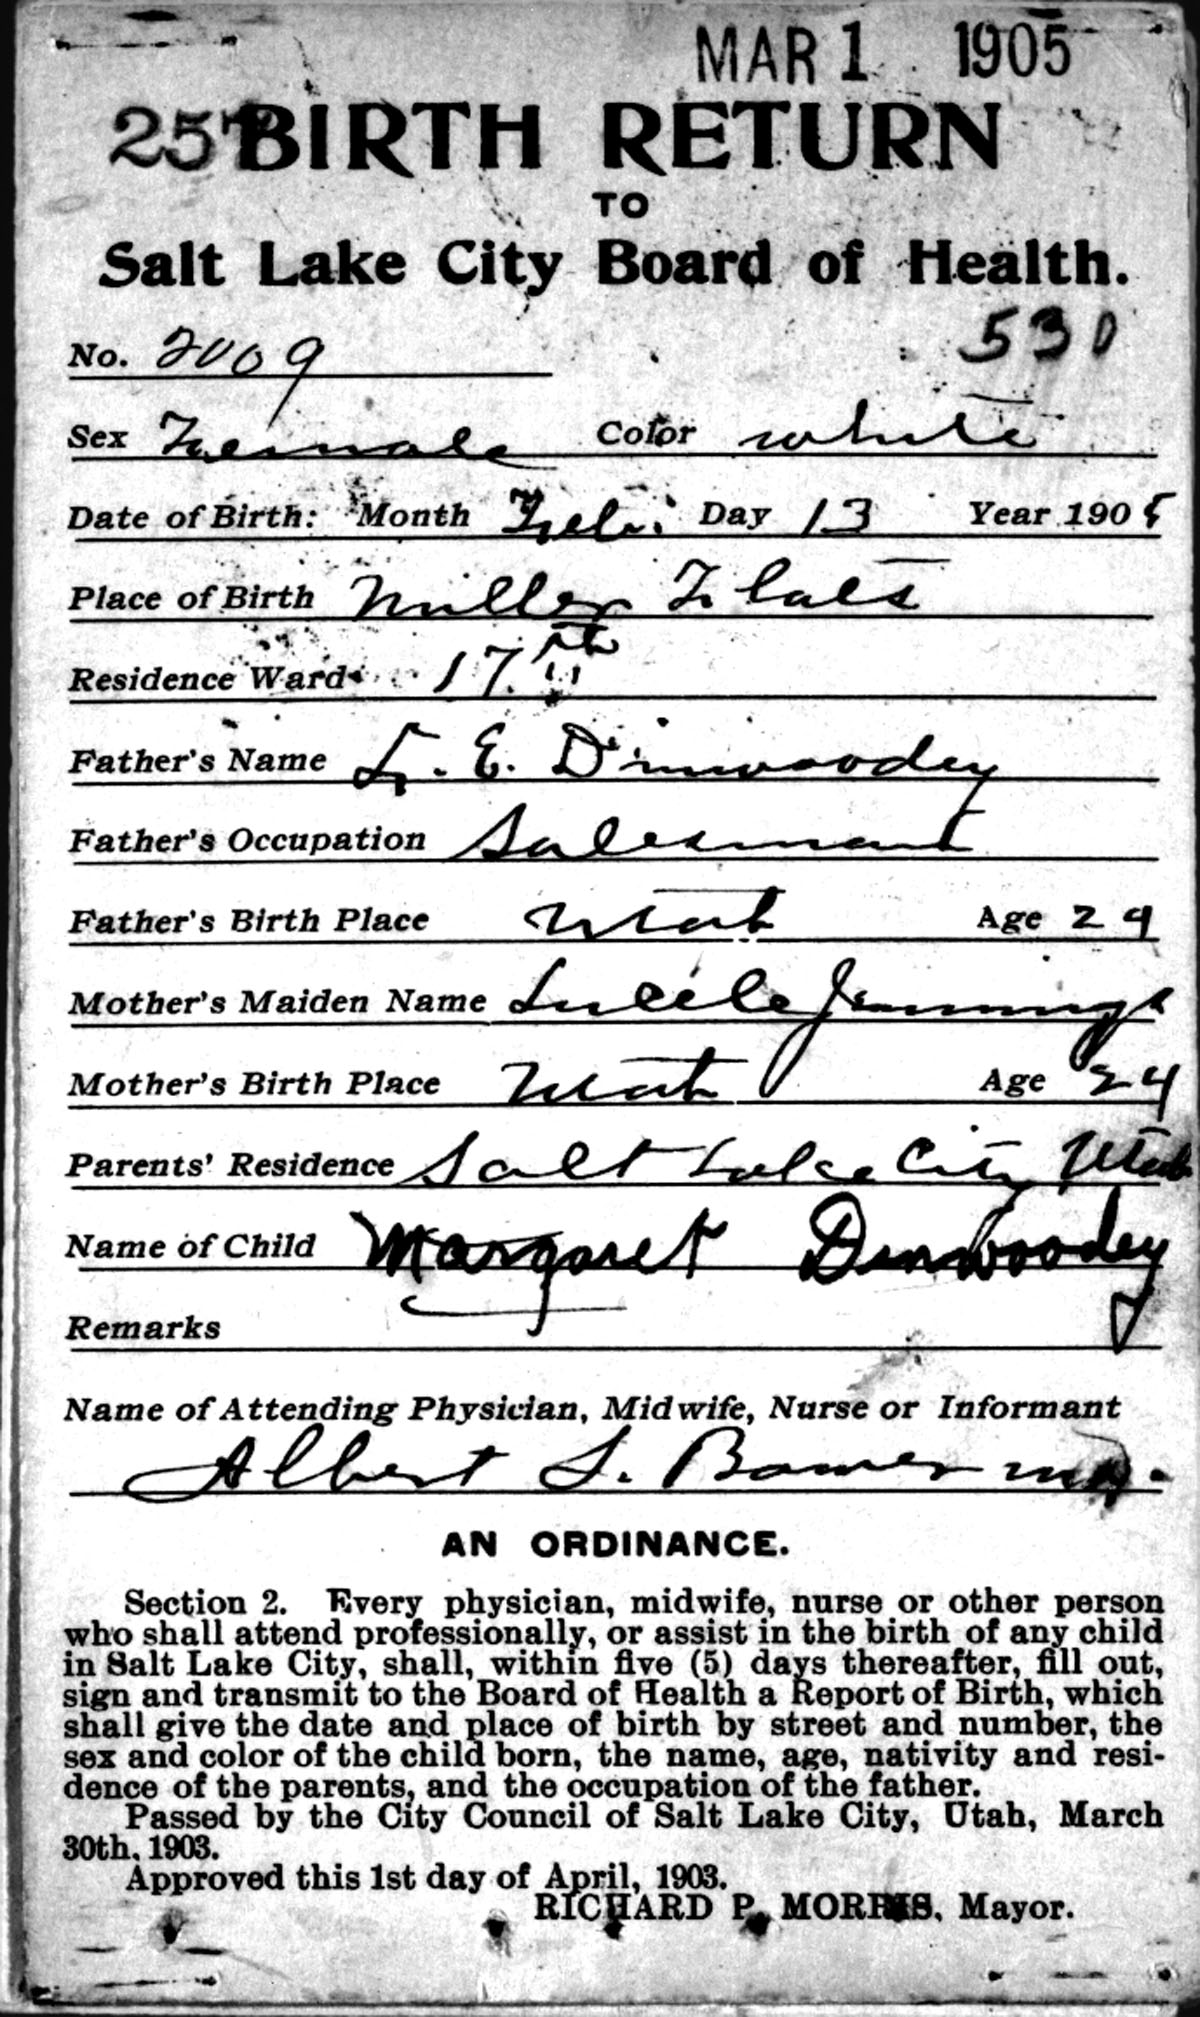 MAR 1 1905
257 BIRTH RETURN
TO
Salt Lake City Board of Health.
530
No. 2009
Sex Female Color white
Date of Birth: Month Feb. Day 13 Year 1905
Place of Birth Miller Flats
Residence Ward 17th
Father's Name E. Dinwoodey
Father's Occupation Salesman
Father's Birth Place Utah Age 24
Mother's Maiden Name Lucile Jennings
Mother's Birth Place Utah Age 24
Parents' Residence Salt Lake City Utah
Name of Child Margaret Dinwoodey
Remarks
Name of Attending Physician, Midwife, Nurse or Informant
Albert S. Bower M.D.
AN ORDINANCE.
Section 2. Every physician, midwife, nurse or other person
who shall attend professionally, or assist in the birth of any child
in Salt Lake City, shall, within five (5) days thereafter, fill out,
sign and transmit to the Board of Health a Report of Birth, which
shall give the date and place of birth by street and number, the
sex and color of the child born, the name, age, nativity and resi-
dence of the parents, and the occupation of the father.
Passed by the City Council of Salt Lake City, Utah, March
30th, 1903.
Approved this 1st day of April, 1903.
RICHARD P. MORRIS, Mayor.